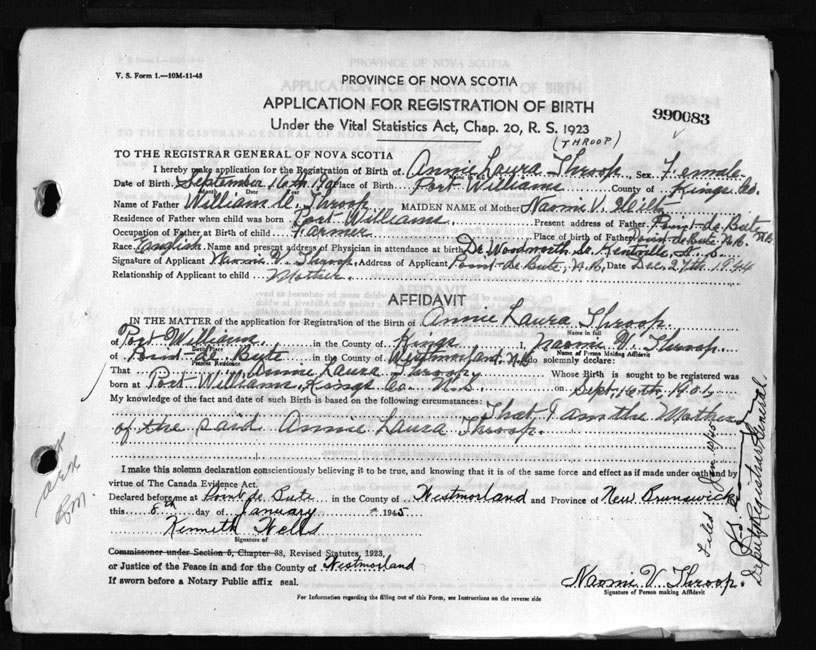 V. S. Form 1.—10M-11-43
PROVINCE OF NOVA SCOTIA
APPLICATION FOR REGISTRATION OF BIRTH
990083
Under the Vital Statistics Act, Chap. 20, R. S. 1923
(THROOP)
TO THE REGISTRAR GENERAL OF NOVA SCOTIA
I hereby make application for the Registration of Birth of Annie Laura Throop Sex Female
Date of Birth September 16th 1901 Place of Birth Port Williams County of Kings Co.
Month Day
Name of Father William Throop MAIDEN NAME of Mother Naomi V.
Residence of Father when child was born Port Williams Present address of Father Point-de Bute N.B.
Occupation of Father at Birth of child Farmer Place of birth of Father Point de Bute N.B.
Race English Name and present address of Physician in attendance at birth Dr. Woodworth Kentville, N. S.
Signature of Applicant Naomi V. Throop Address of Applicant Point-De Bute, N.B. Date Dec. 27th 1944
Relationship of Applicant to child Mother
AFFIDAVIT
IN THE MATTER of the application for Registration of the Birth of Annie Laura Throop
Name in full
of Port Williams in the County of Kings I, Naomi V. Throop
Birth Place Name of Person Making Affidavit
of Point-de Bute in the County of Westmorland N.B. do solemnly declare:
Present Residence
That Annie Laura Throop Whose Birth is sought to be registered was
born at Port Williams, Kings Co. N.S. on Sept. 16th, 1901
My knowledge of the fact and date of such Birth is based on the following circumstances: That I am the Mother
of the said Annie Laura Throop.
I make this solemn declaration conscientiously believing it to be true, and knowing that it is of the same force and effect as if made under oath and by
virtue of The Canada Evidence Act.
Declared before me at Point de Bute in the County of Westmorland and Province of New Brunswick
this 8th day of January 1945
Kenneth Wells
Signature of
Commissioner under Section 5, Chapter 38, Revised Statutes, 1923,
or Justice of the Peace in and for the County of Westmorland
If sworn before a Notary Public affix seal.
Naomi V. Throop.
Signature of Person making Affidavit
For Information regarding the filling out of this Form, see Instructions on the reverse side
Filed Jan
Deputy Registrar General.